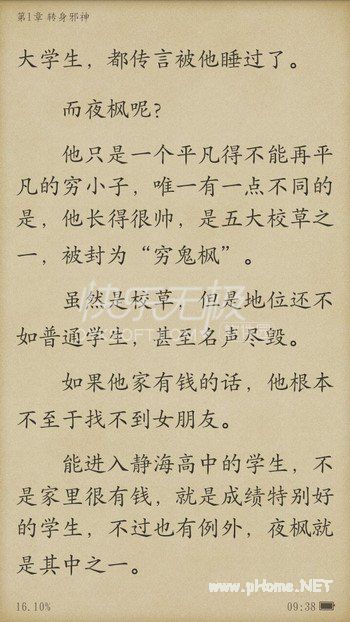 第1章 转身邪神
大学生，都传言被他睡过了。
而夜枫呢?
他只是一个平凡得不能再平
凡的穷小子，唯一有一点不同的
是，他长得很帅，是五大校草之
一，被封为“穷鬼枫”。
虽然是校草，但是地位还不
如普通学生，甚至名声尽毁。
如果他家有钱的话，他根本
不至于找不到女朋友。
能进入静海高中的学生，不
是家里很有钱，就是成绩特别好
的学生，不过也有例外，夜枫就
是其中之一。
www.pHome.NET
16.10%
09:38